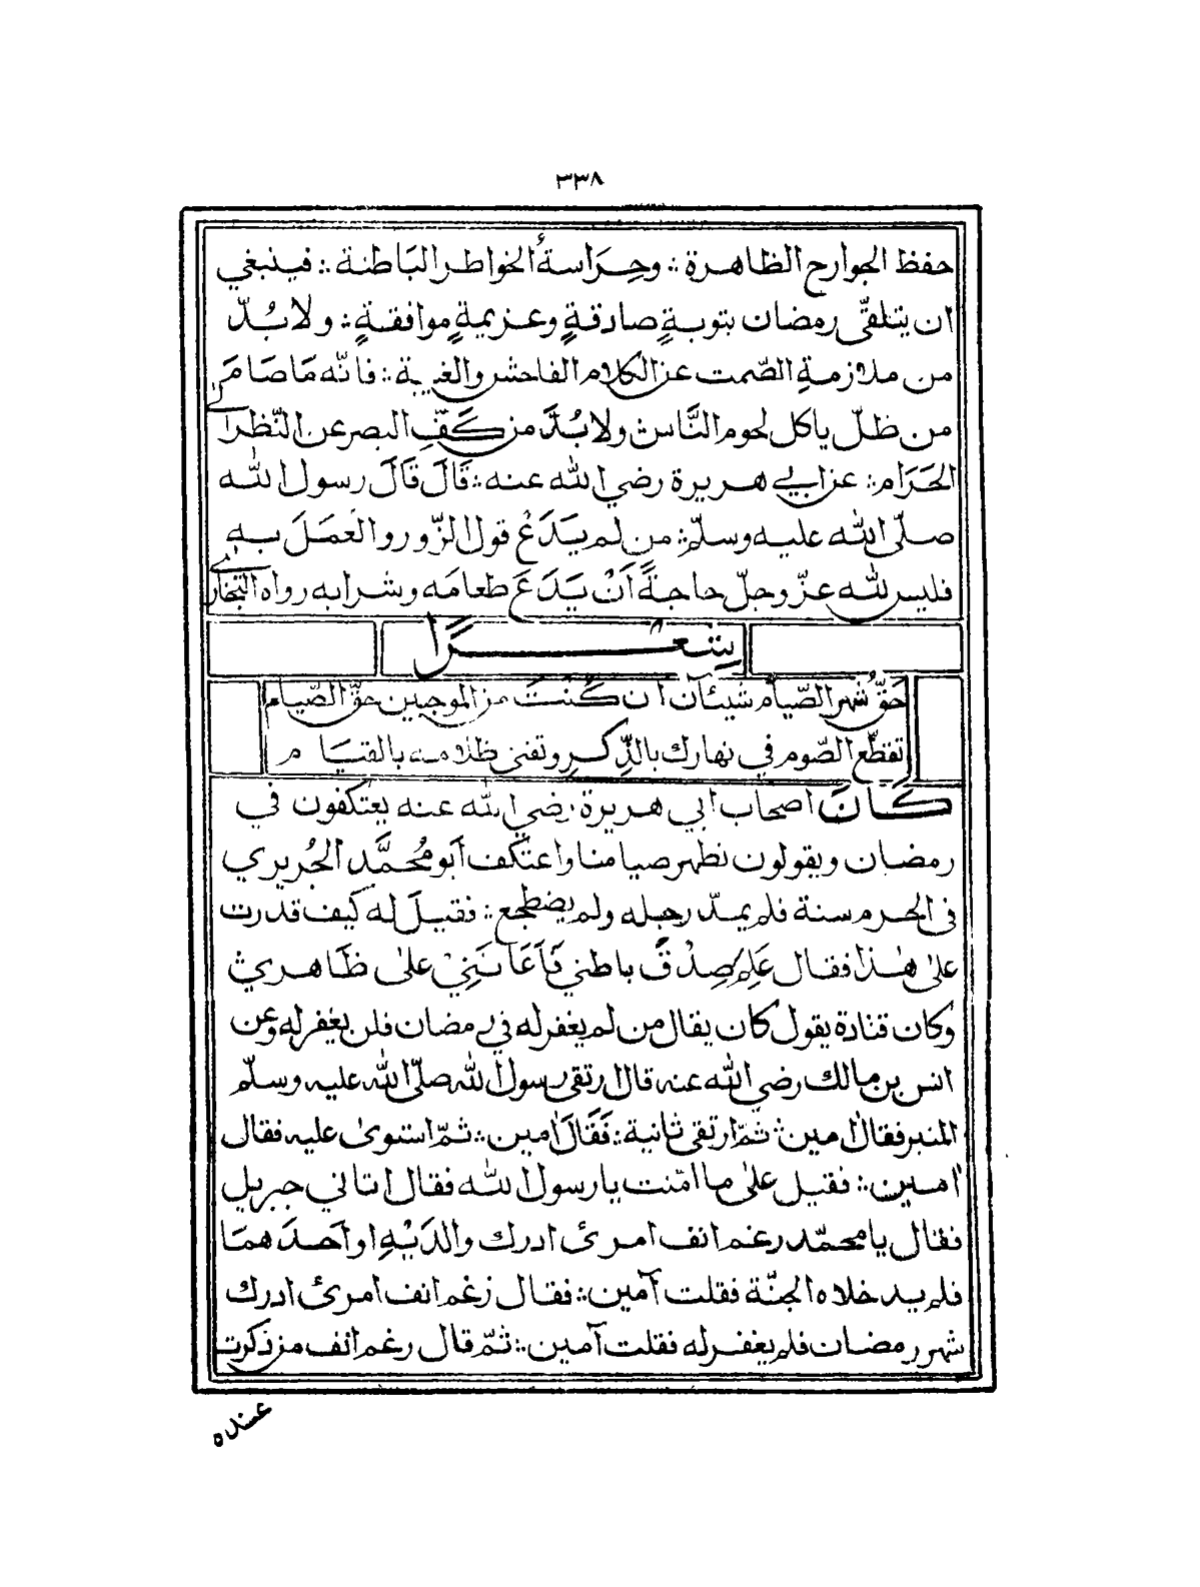 ٣٣٨
حفظ الجوارح الظاهرة ؞ وحِرَاسةُ الخواطر البَاطنة ؞ فينبغي
ان يتلقّى رمضان بتوبةٍ صادقةٍ وعزيمةٍ موافقةٍ ؞ ولا بُدّ
من ملازمةِ الصّمت عن الكلام الفاحش والغيبة ؞ فانّه مَا صَامَ
من ظلّ ياكل لحوم النَّاس ؞ ولا بُدَّ من كَفِّ البصر عن النّظر الى
الحَرَام ؞ عن ابي هريرة رضي الله عنه ؞ قَالَ قَالَ رسول الله
صلّى الله عليه وسلّم ؞ من لم يَدَعْ قول الزّور والعَمَلَ بهِ
فليس لله عزّ وجلّ حاجةً اَنْ يَدَعَ طعامَه وشرابه رواه البخاري
شِعْرًا
حَقُّ شهر الصّيام شيئآن ان كُنْتَ من الموجبين حقّ الصّيام
تقطّع الصّوم في نهارك بالذِّكرِ وتفنى ظلامه بالقيَام
كَانَ اصحاب ابي هريرة رضي الله عنه يعتكفون في
رمضان ويقولون نطهر صيامنا واعتكف اَبو مُحمَّد الجُريري
في الحرم سنة فلم يمدّ رجله ولم يضطجع ؞ فقيلَ له كيف قدرت
على هٰذا فقال عَلِمَ صِدْقَ باطني فَاَعَانَنِيْ على ظَاهري ؞
وكان قتادة يقول كان يقال من لم يغفر له في رمضان فلن يغفر له وعن
انس بن مالك رضي الله عنه قال ارتقى رسول الله صلّى الله عليه وسلّم
المنبر فقال اٰمين ؞ ثمّ ارتقى ثانية ؞ فَقَالَ اٰمين ؞ ثمّ استوىٰ عليه فقال
اٰمين ؞ فقيل على ما امّنت يا رسول الله فقال اتاني جبريل
فقال يا محمّد رغم انف امرئ ادرك والدَيْهِ او اَحدَهمَا
فلم يدخلاه الجنّة فقلت آمين ؞ فقال رَغم انف امرئ ادرك
شهر رمضان فلم يغفر له فقلت آمين ؞ ثمّ قال رغم انف من ذكرت
عنده